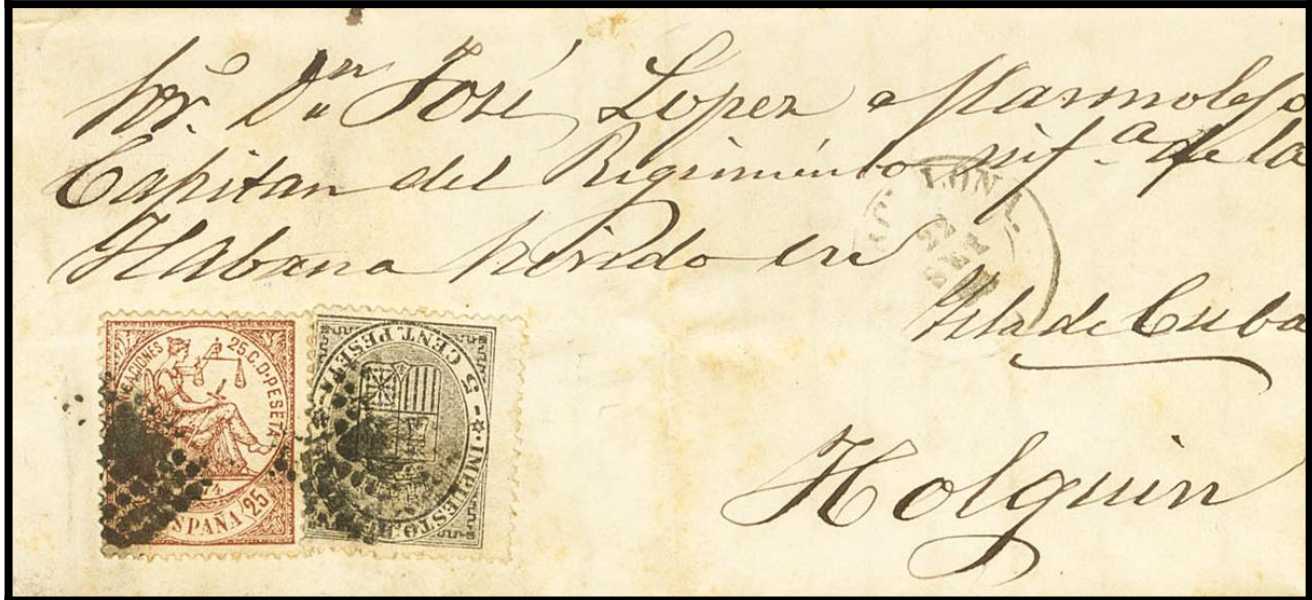 Sor. Dn José Lopez e Marmolejo
Capitan del Regimiento inf.a de la
Habana herido en
Ysla de Cuba
Holguin
LONA
22
SET
25 C. D. PESETA
74
25
5 CENT. PESETA
IMPUESTO